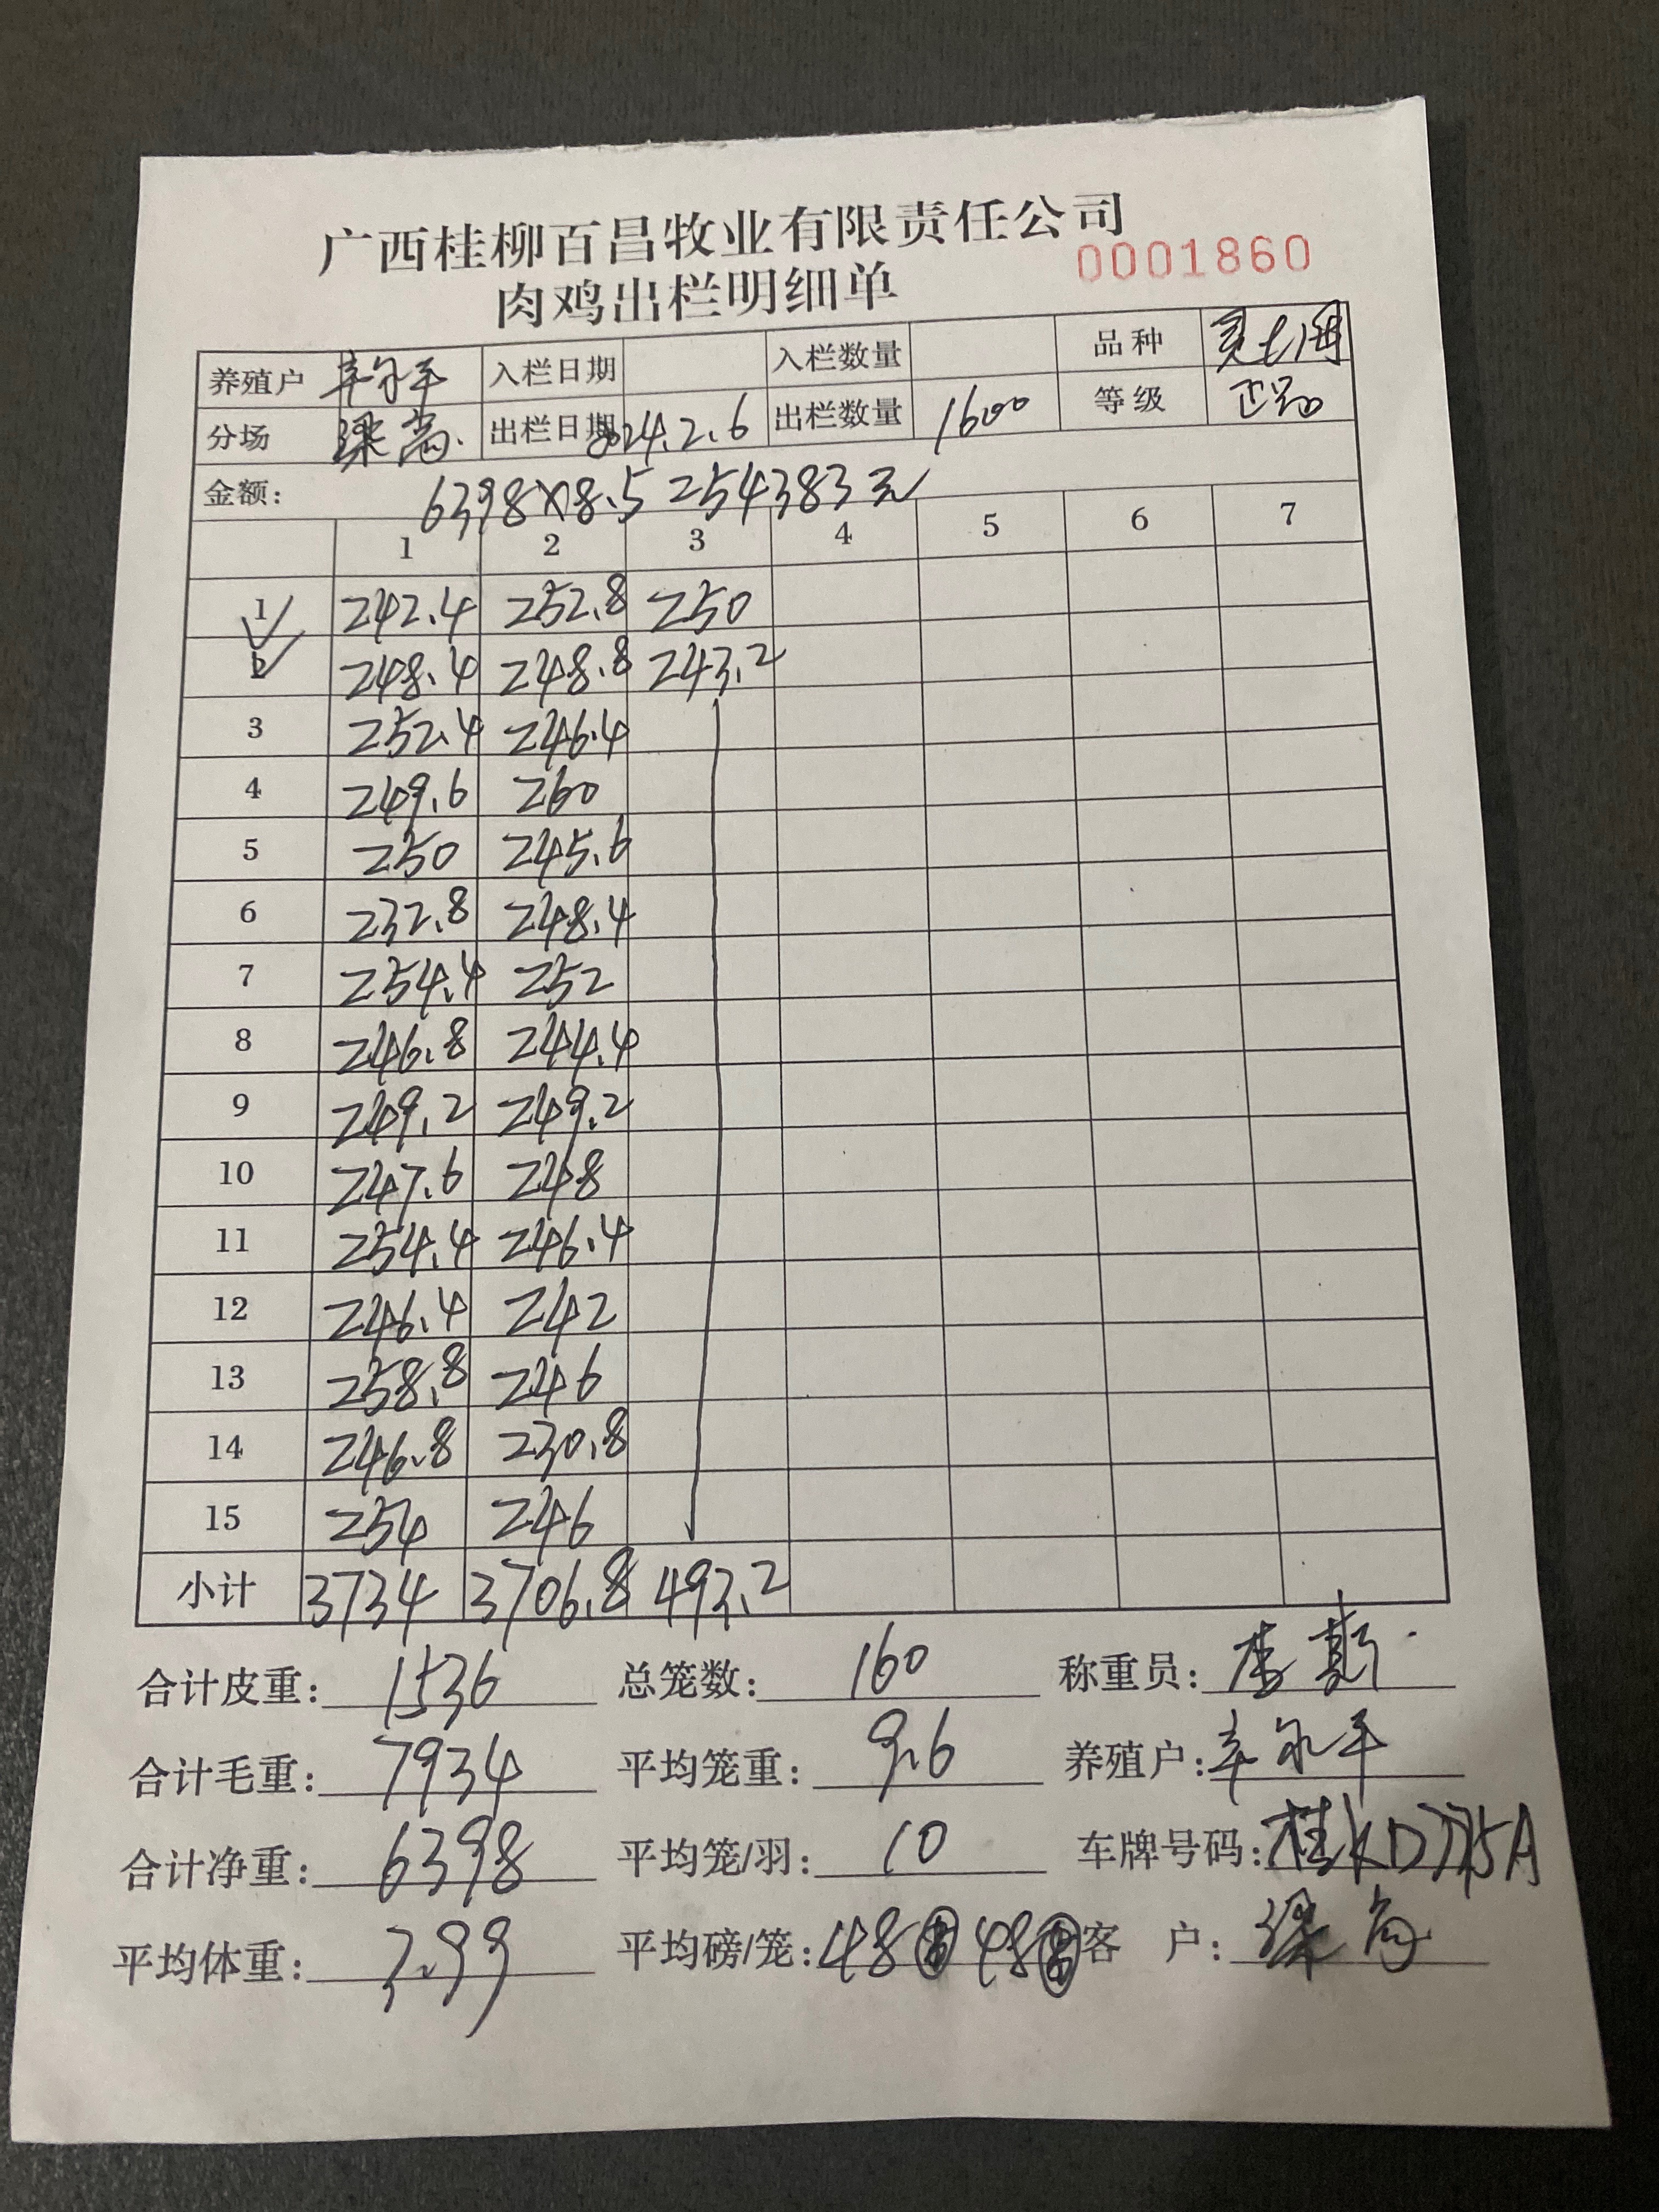 广西桂柳百昌牧业有限责任公司
0001860
肉鸡出栏明细单
养殖户 入栏日期 入栏数量 品种
分场 梁高 出栏日期 2024.2.6 出栏数量 1600 等级 正品
金额: 6398×8.5 = 54383元
1 2 3 4 5 6 7
1 242.4 252.8 250
2 248.4 248.8 243.2
3 252.4 246.4
4 249.6 260
5 250 245.6
6 232.8 248.4
7 254.4 252
8 246.8 244.4
9 249.2 249.2
10 247.6 248
11 254.4 246.4
12 246.4 242
13 258.8 246
14 246.8 230.8
15 254 246
小计 3734 3706.8 493.2
合计皮重: 1536 总笼数: 160 称重员:
合计毛重: 7934 平均笼重: 9.6 养殖户:
合计净重: 6398 平均笼/羽: 10 车牌号码:
平均体重: 3.99 平均磅/笼: 48 48 客 户: 梁高